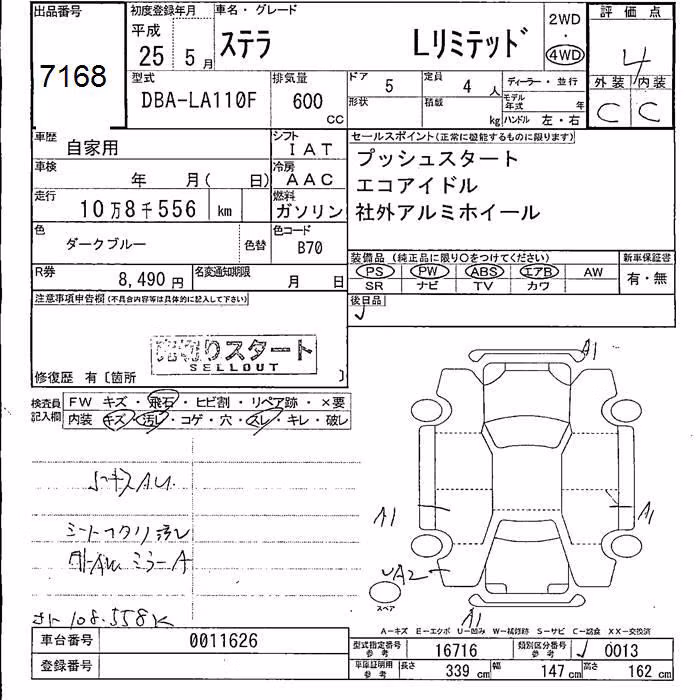 出品番号 初度登録年月 車名・グレード 2WD ・ 4WD 評価点
7168 平成 25 5月 ステラ Lリミテッド 4
型式 排気量 ドア 5 定員 4人 ディーラー・並行 外装 内装
DBA-LA110F 600cc 形状 積載 kg モデル年式 年 ハンドル 左・右 C C
車歴 自家用 シフト IAT セールスポイント(正常に機能するものに限ります)
車検 年 月( 日) 冷房 AAC プッシュスタート
エコアイドル
走行 10万8千556 km 燃料 ガソリン 社外アルミホイール
色 ダークブルー 色替 色コード B70
装備品(純正品に限り○をつけてください) 新車保証書
R券 8,490円 名変通知期限 月 日 PS PW ABS エアB AW 有・無
SR ナビ TV カワ
注意事項申告欄(不具合内容等は具体的に記入して下さい) 後日品
売切りスタート
SELLOUT
修復歴 有〔箇所 〕
検査員記入欄 FW キズ・飛石・ヒビ割・リペア跡・×要
内装 キズ・汚レ・コゲ・穴・スレ・キレ・破レ
A1
A1
A1
A2
A1
スペア
108.558K
A-キズ E-エクボ U-凹み W-補修跡 S-サビ C-腐食 XX-交換済
車台番号 0011626 型式指定番号 参考 16716 類別区分番号 参考 0013
登録番号 車庫証明用 参考 長さ 339cm 幅 147cm 高さ 162cm